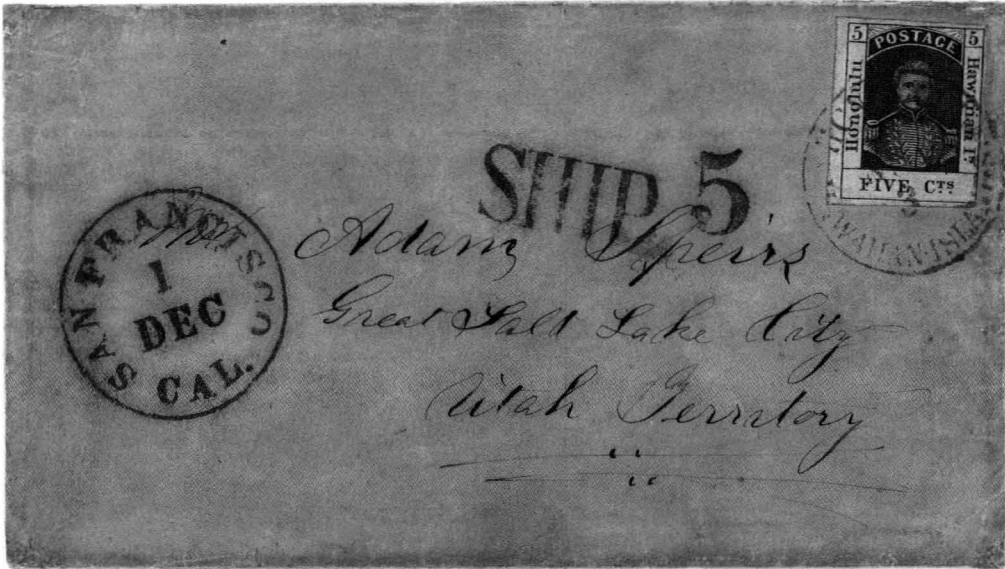 5 POSTAGE 5
Honolulu
Hawaiian Is.
FIVE CTS
WAIIAN-ISLA
SHIP 5
SAN FRANCISCO
1
DEC
CAL.
Adam Speirs
Great Salt Lake City
Utah Territory